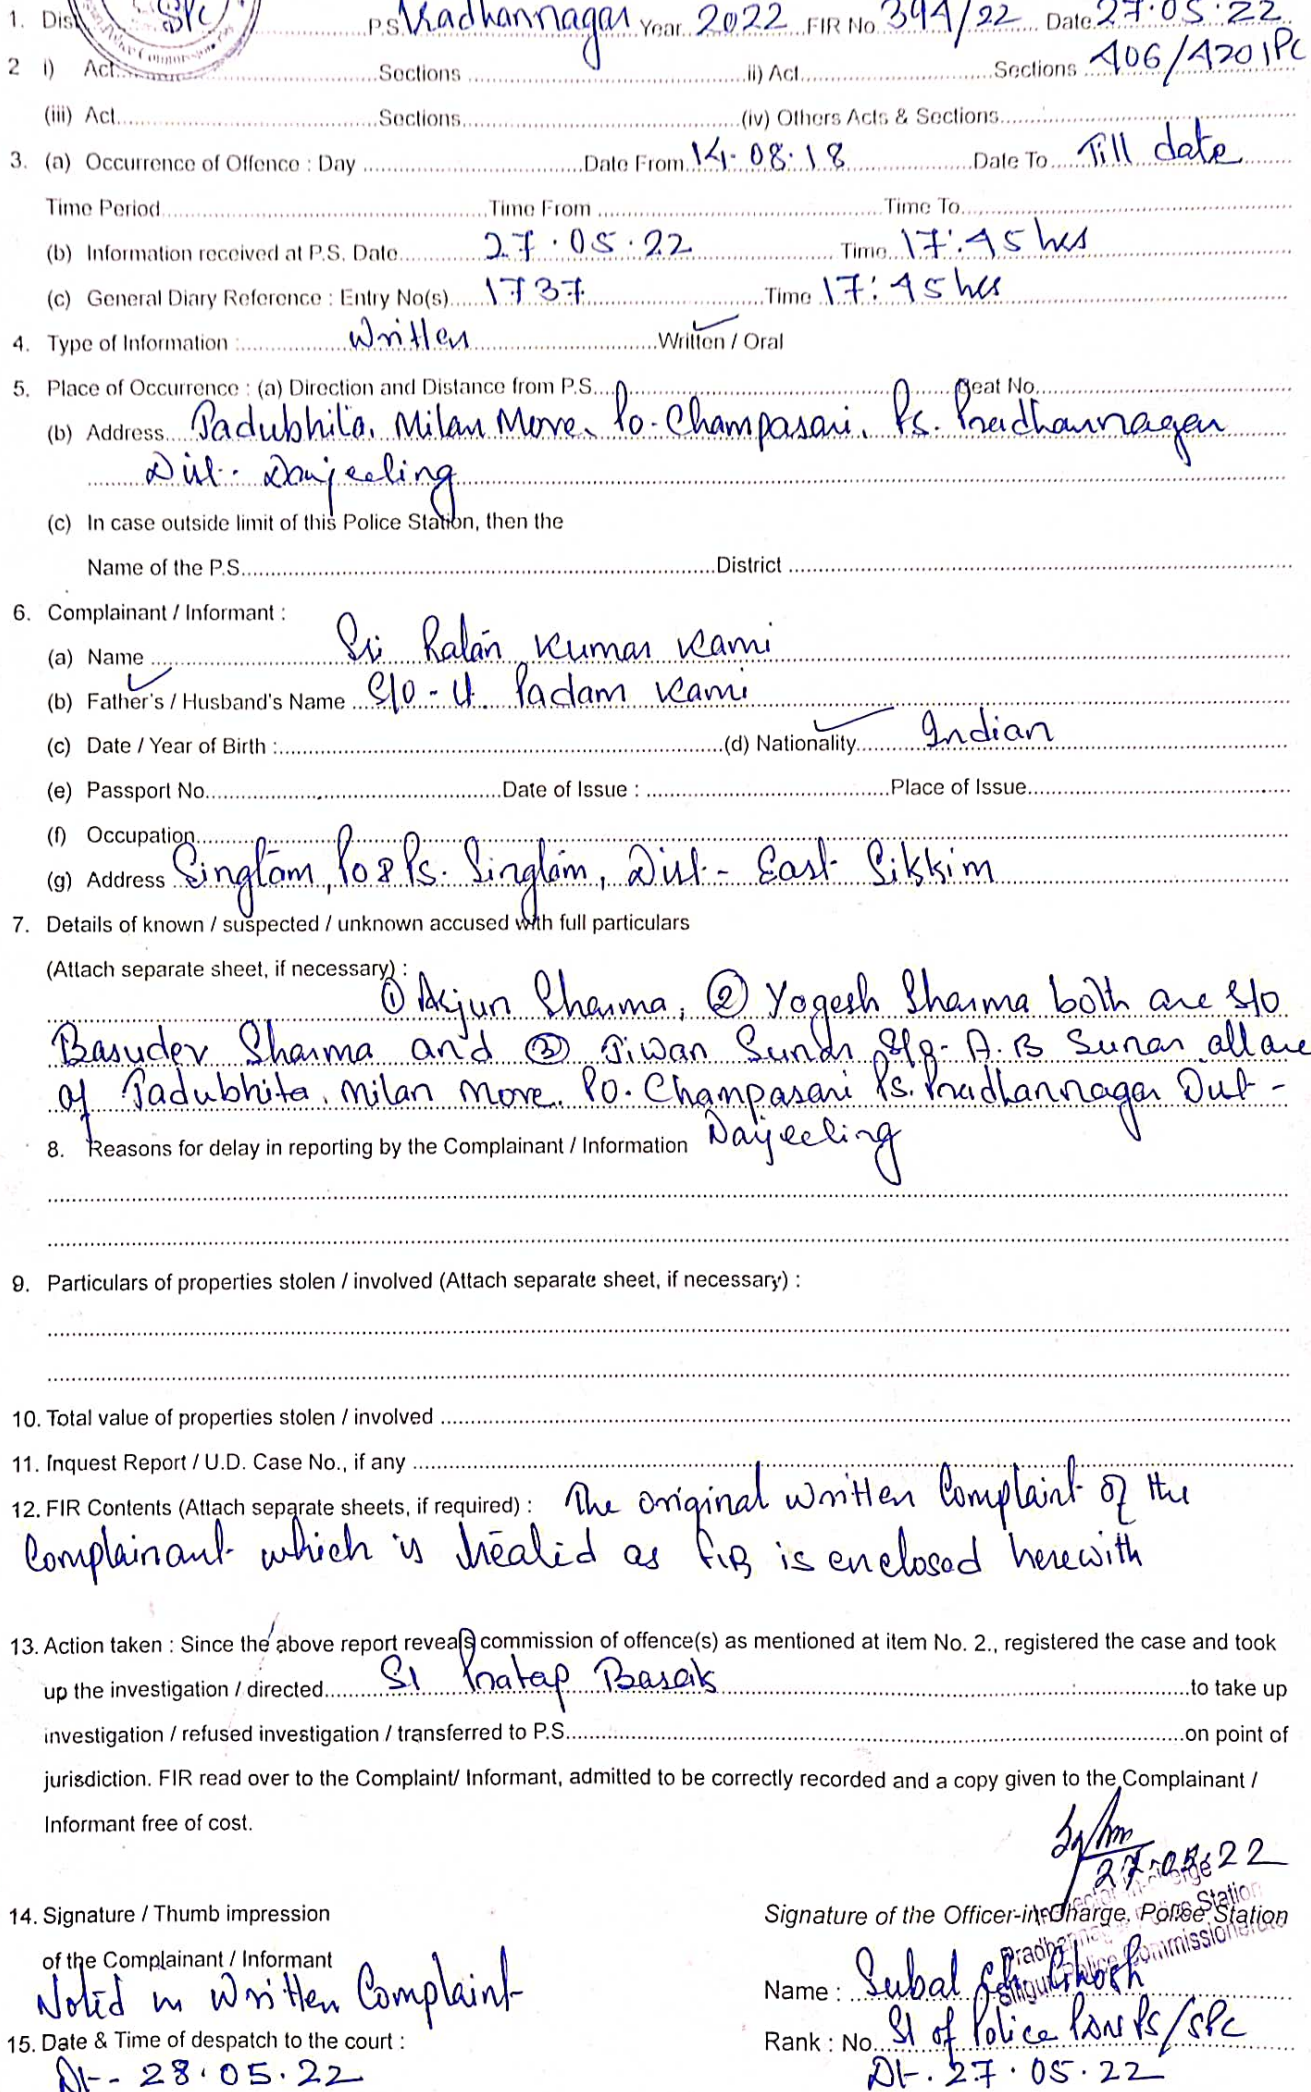 1. Dist SPC P.S. Pradhannagar Year 2022 FIR No 394/22 Date 27.05.22
2 i) Act Sections ii) Act Sections 406/420 IPC
(iii) Act Sections (iv) Others Acts & Sections
3. (a) Occurrence of Offence : Day Date From 14.08.18 Date To Till date
Time Period Time From Time To
(b) Information received at P.S. Date 27.05.22 Time 17:45 hrs
(c) General Diary Reference : Entry No(s) 1737 Time 17:45 hrs
4. Type of Information : Written Written / Oral
5. Place of Occurrence : (a) Direction and Distance from P.S. Beat No.
(b) Address Jadubhita, Milan More, Po. Champasari, Ps. Pradhannagar
Dist- Darjeeling
(c) In case outside limit of this Police Station, then the
Name of the P.S. District
6. Complainant / Informant :
(a) Name Sri Ratan Kumar Kami
(b) Father's / Husband's Name S/O - Lt. Padam Kami
(c) Date / Year of Birth : (d) Nationality Indian
(e) Passport No. Date of Issue : Place of Issue
(f) Occupation
(g) Address Singtam, Po & Ps. Singtam, Dist - East Sikkim
7. Details of known / suspected / unknown accused with full particulars
(Attach separate sheet, if necessary) :
① Arjun Sharma, ② Yogesh Sharma both are S/O
Basudev Sharma and ③ Jiwan Sunar S/o- A.B Sunar all are
of Jadubhita, Milan More. PO. Champasari Ps. Pradhannagar Dist -
8. Reasons for delay in reporting by the Complainant / Information Darjeeling
9. Particulars of properties stolen / involved (Attach separate sheet, if necessary) :
10. Total value of properties stolen / involved
11. Inquest Report / U.D. Case No., if any
12. FIR Contents (Attach separate sheets, if required) : The original written Complaint of the
Complainant which is treated as FIR is enclosed herewith
13. Action taken : Since the above report reveals commission of offence(s) as mentioned at item No. 2., registered the case and took
up the investigation / directed SI Pratap Basak to take up
investigation / refused investigation / transferred to P.S. on point of
jurisdiction. FIR read over to the Complaint/ Informant, admitted to be correctly recorded and a copy given to the Complainant /
Informant free of cost.
27.05.22
14. Signature / Thumb impression
of the Complainant / Informant
Noted in Written Complaint
Signature of the Officer-in-Charge, Police Station
Name : Subal Ch. Ghosh
Rank : No. SI of Police PDN PS/SPC
Dt. 27.05.22
15. Date & Time of despatch to the court :
Dt- 28.05.22